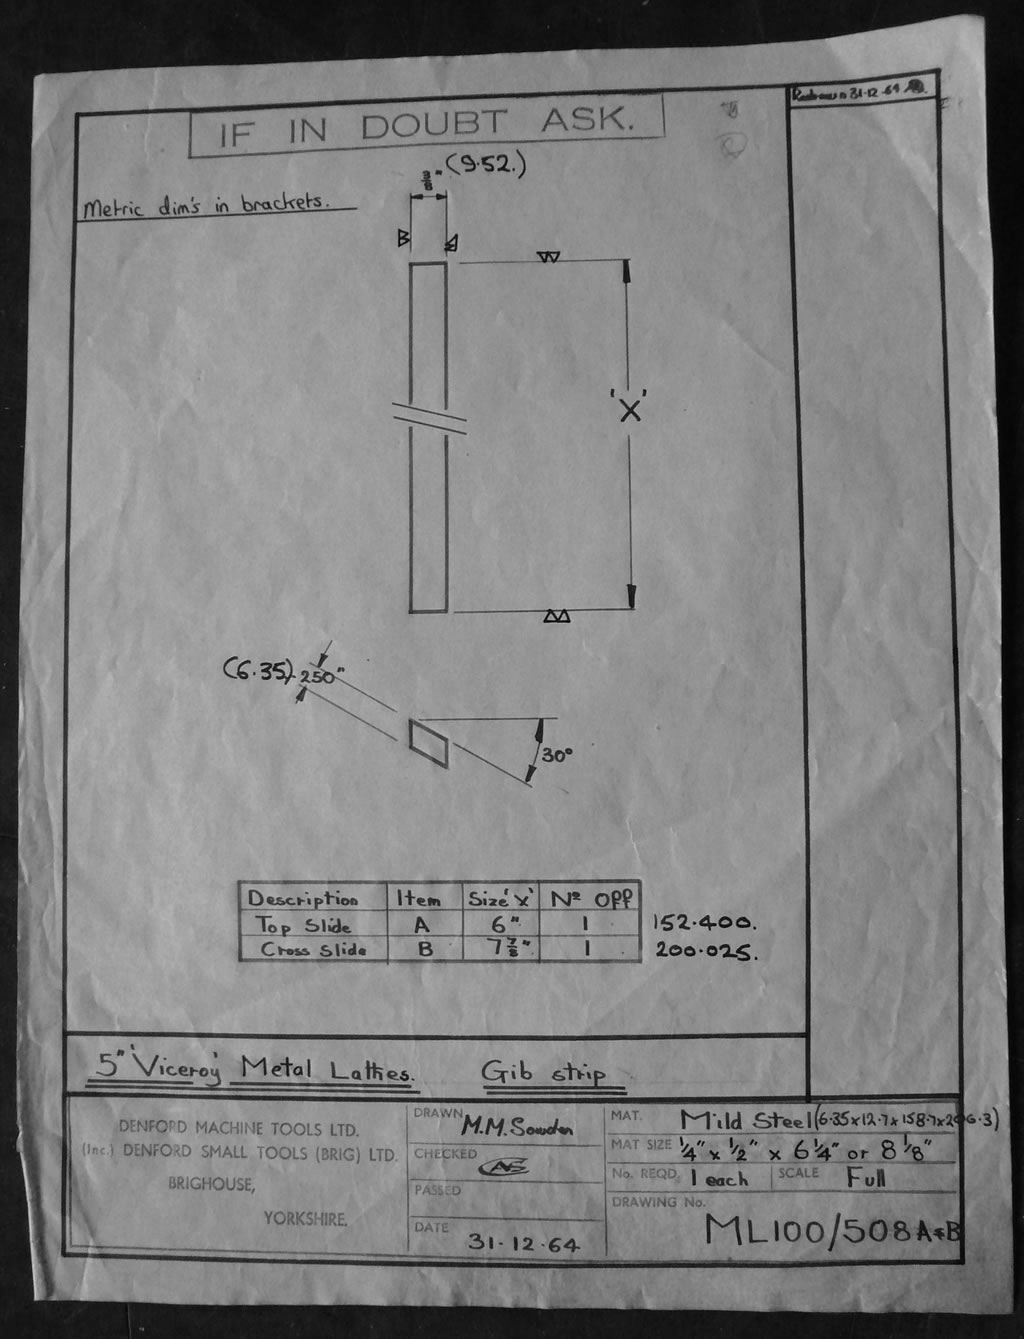 Redrawn 31-12-64
IF IN DOUBT ASK.
Metric dim's in brackets.
3/8" (9·52.)
B
'X'
(6·35) .250"
30°
Description Item Size 'X' Nº OFF
Top Slide A 6" 1 152·400.
Cross Slide B 7 7/8" 1 200·025.
5" 'Viceroy' Metal Lathes. Gib strip
DENFORD MACHINE TOOLS LTD.
(Inc.) DENFORD SMALL TOOLS (BRIG) LTD.
BRIGHOUSE,
YORKSHIRE.
DRAWN M.M. Sowden
CHECKED
PASSED
DATE 31·12·64
MAT. Mild Steel (6·35x12·7x158·7x206·3)
MAT SIZE 1/4" x 1/2" x 6 1/4" or 8 1/8"
No. REQD. 1 each SCALE Full
DRAWING No.
ML100/508 A&B